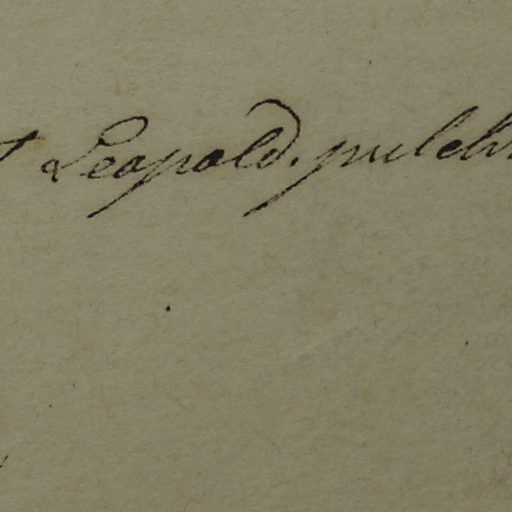 Leopold. pulch